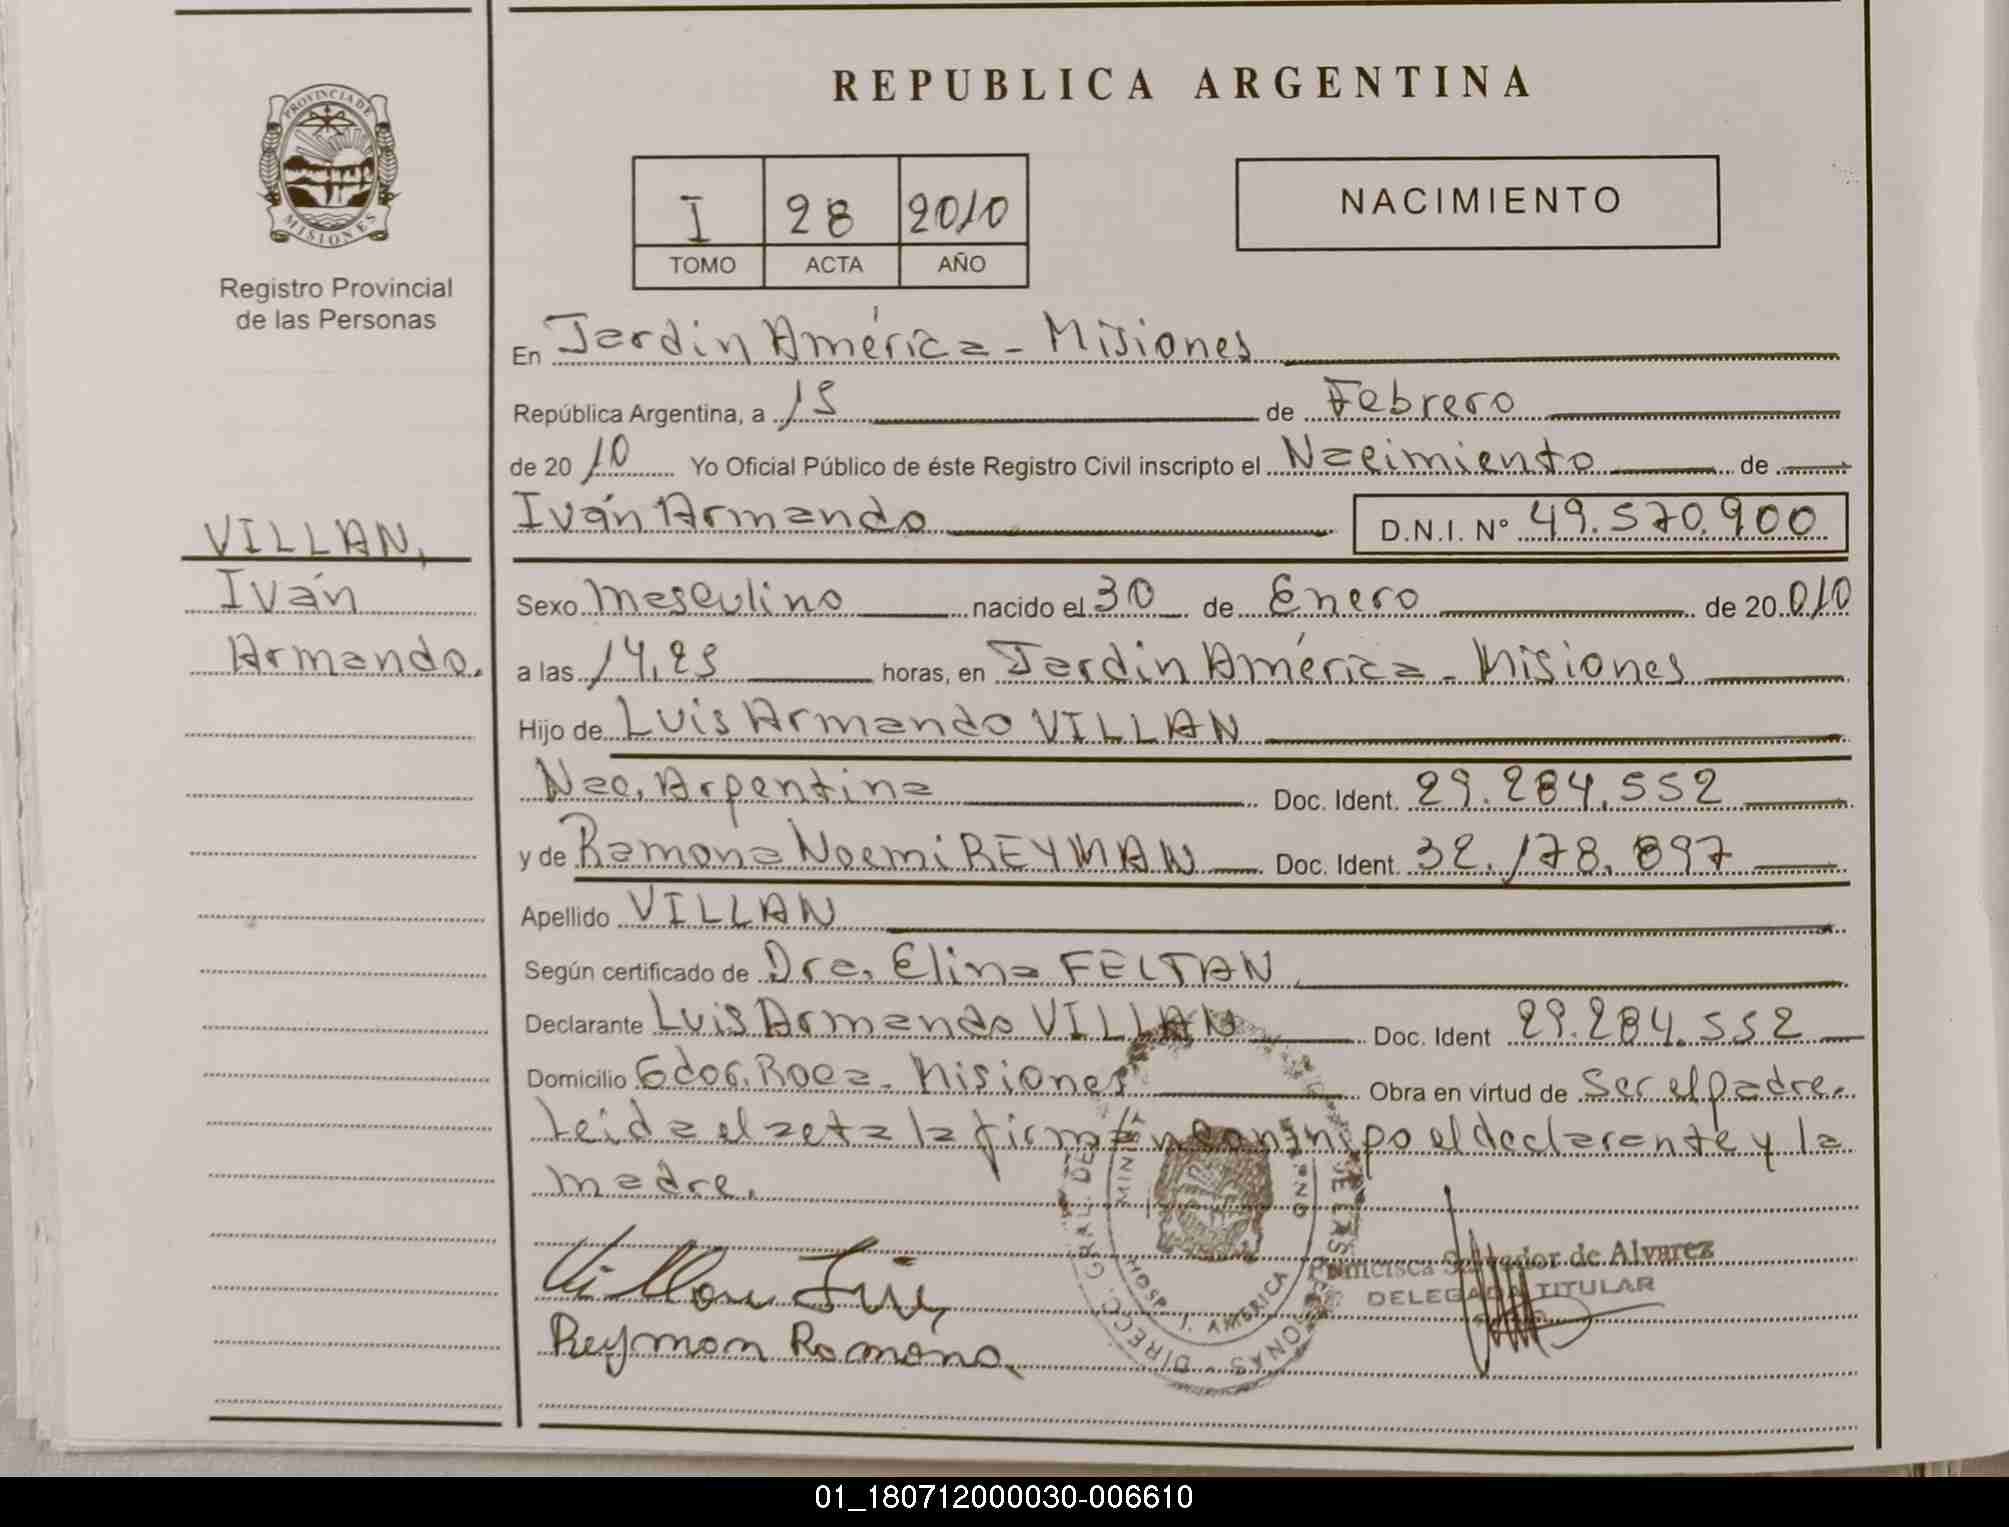 REPUBLICA ARGENTINA
PROVINCIA DE
MISIONES
Registro Provincial
de las Personas
I 28 2010
TOMO ACTA AÑO
NACIMIENTO
VILLAN,
Iván
Armando.
En Jardin América - Misiones
República Argentina, a 15 de Febrero
de 20 10 Yo Oficial Público de éste Registro Civil inscripto el Nacimiento de
Iván Armando D.N.I. Nº 49.570.900
Sexo Masculino nacido el 30 de Enero de 20 010
a las 14,25 horas, en Jardin América - Misiones
Hijo de Luis Armando VILLAN
Nac. Argentina Doc. Ident. 29.284.552
y de Ramona Noemi REYMAN Doc. Ident. 32.178.897
Apellido VILLAN
Según certificado de Dra. Elina FELTAN
Declarante Luis Armando VILLAN Doc. Ident 29.284.552
Domicilio Gdor. Roca - Misiones Obra en virtud de Ser el padre.
Leida el acta la firman conmigo el declarante y la
madre.
Villan Luis
Reyman Ramona
DIRECC. GRAL. DE LAS
HOSP. J. AMERICA
Francisca Salvador de Alvarez
DELEGADA TITULAR
01_180712000030-006610